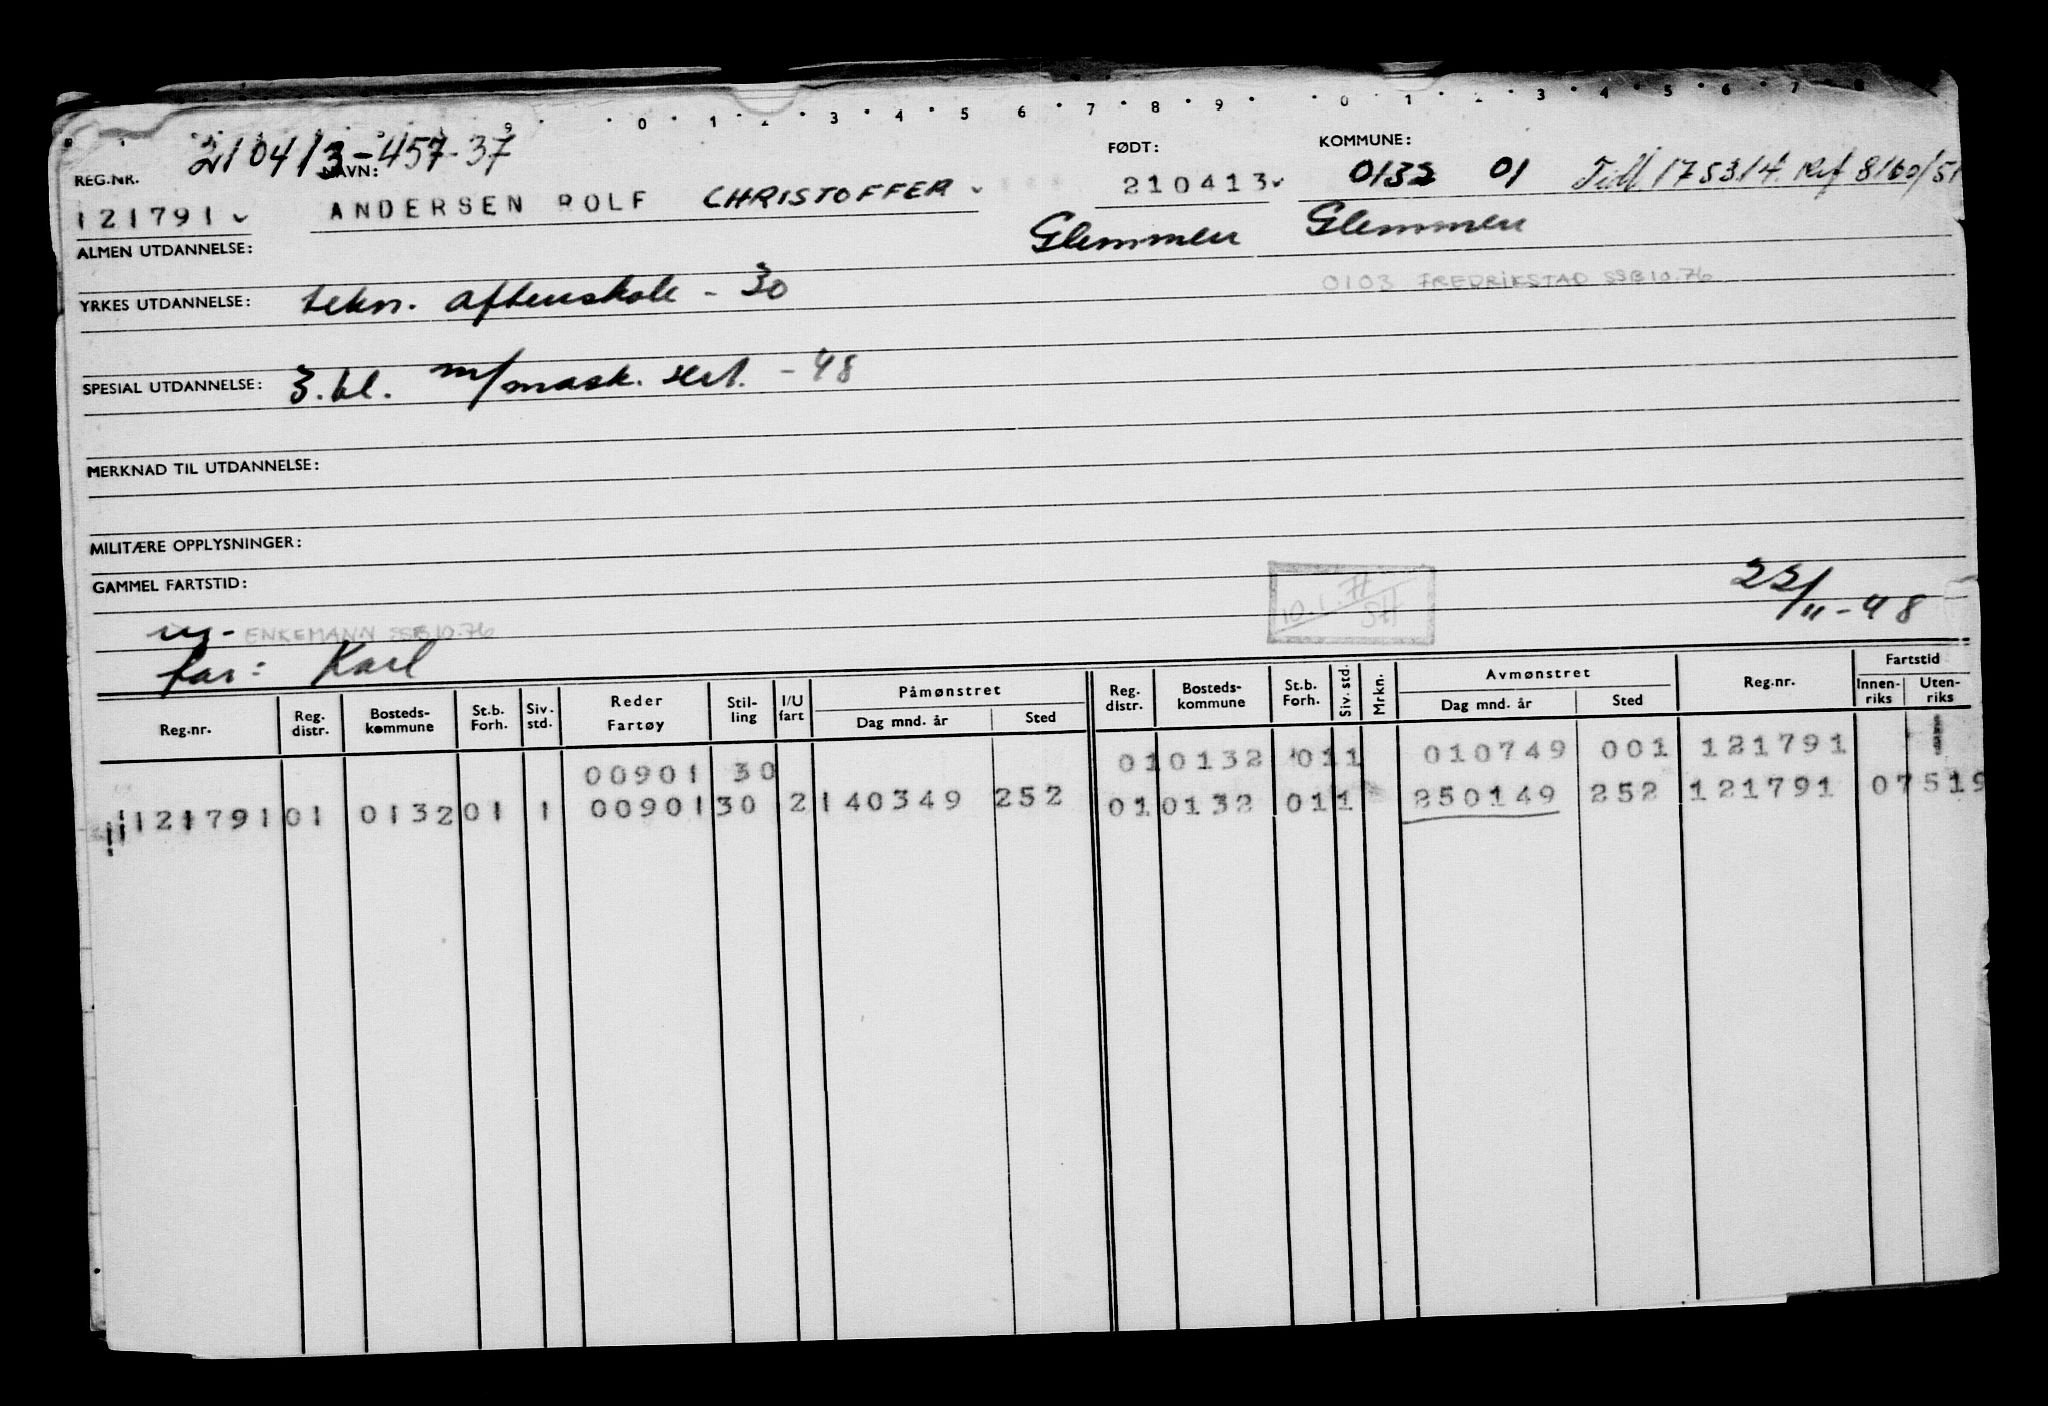 9 0 1 2 3 4 5 6 7 8 9 0 1 2 3 4 5 6 7 8
210413-457-37
REG.NR. NAVN: FØDT: KOMMUNE:
121791 ANDERSEN ROLF CHRISTOFFER 210413 0132 01 Tidl. 175314. Ref 8160/51
ALMEN UTDANNELSE: Glemmen Glemmen
YRKES UTDANNELSE: tekn. aftenskole - 30 0103 FREDRIKSTAD SSB10.76
SPESIAL UTDANNELSE: 3.kl. m/mask. sert. - 48
MERKNAD TIL UTDANNELSE:
MILITÆRE OPPLYSNINGER:
GAMMEL FARTSTID:
22/11-48
ENKEMANN SSB10.76
far: Karl
Reg.nr. Reg. distr. Bosteds-kommune St.b. Forh. Siv. std. Reder Fartøy Stil-ling I/U fart Påmønstret Dag mnd. år Sted Reg. distr. Bosteds-kommune St.b. Forh. Siv. std. Mrkn. Avmønstret Dag mnd. år Sted Reg.nr. Fartstid Innen-riks Uten-riks
00901 30 01 0132 01 1 010749 001 121791
121791 01 0132 01 1 00901 30 2 140349 252 01 0132 01 1 250149 252 121791 07519